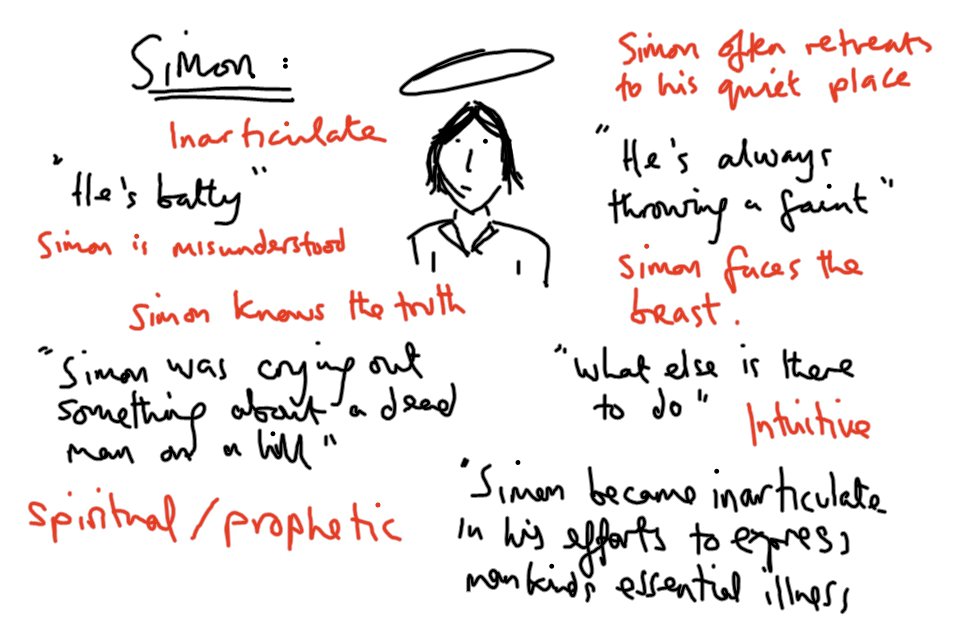 Simon:
Inarticulate
"He's batty"
Simon is misunderstood
Simon knows the truth
"Simon was crying out
something about a dead
man on a hill"
Spiritual/prophetic
Simon often retreats
to his quiet place
"He's always
throwing a faint"
Simon faces the
beast.
"What else is there
to do"
Intuitive
"Simon became inarticulate
in his efforts to express
mankinds essential illness